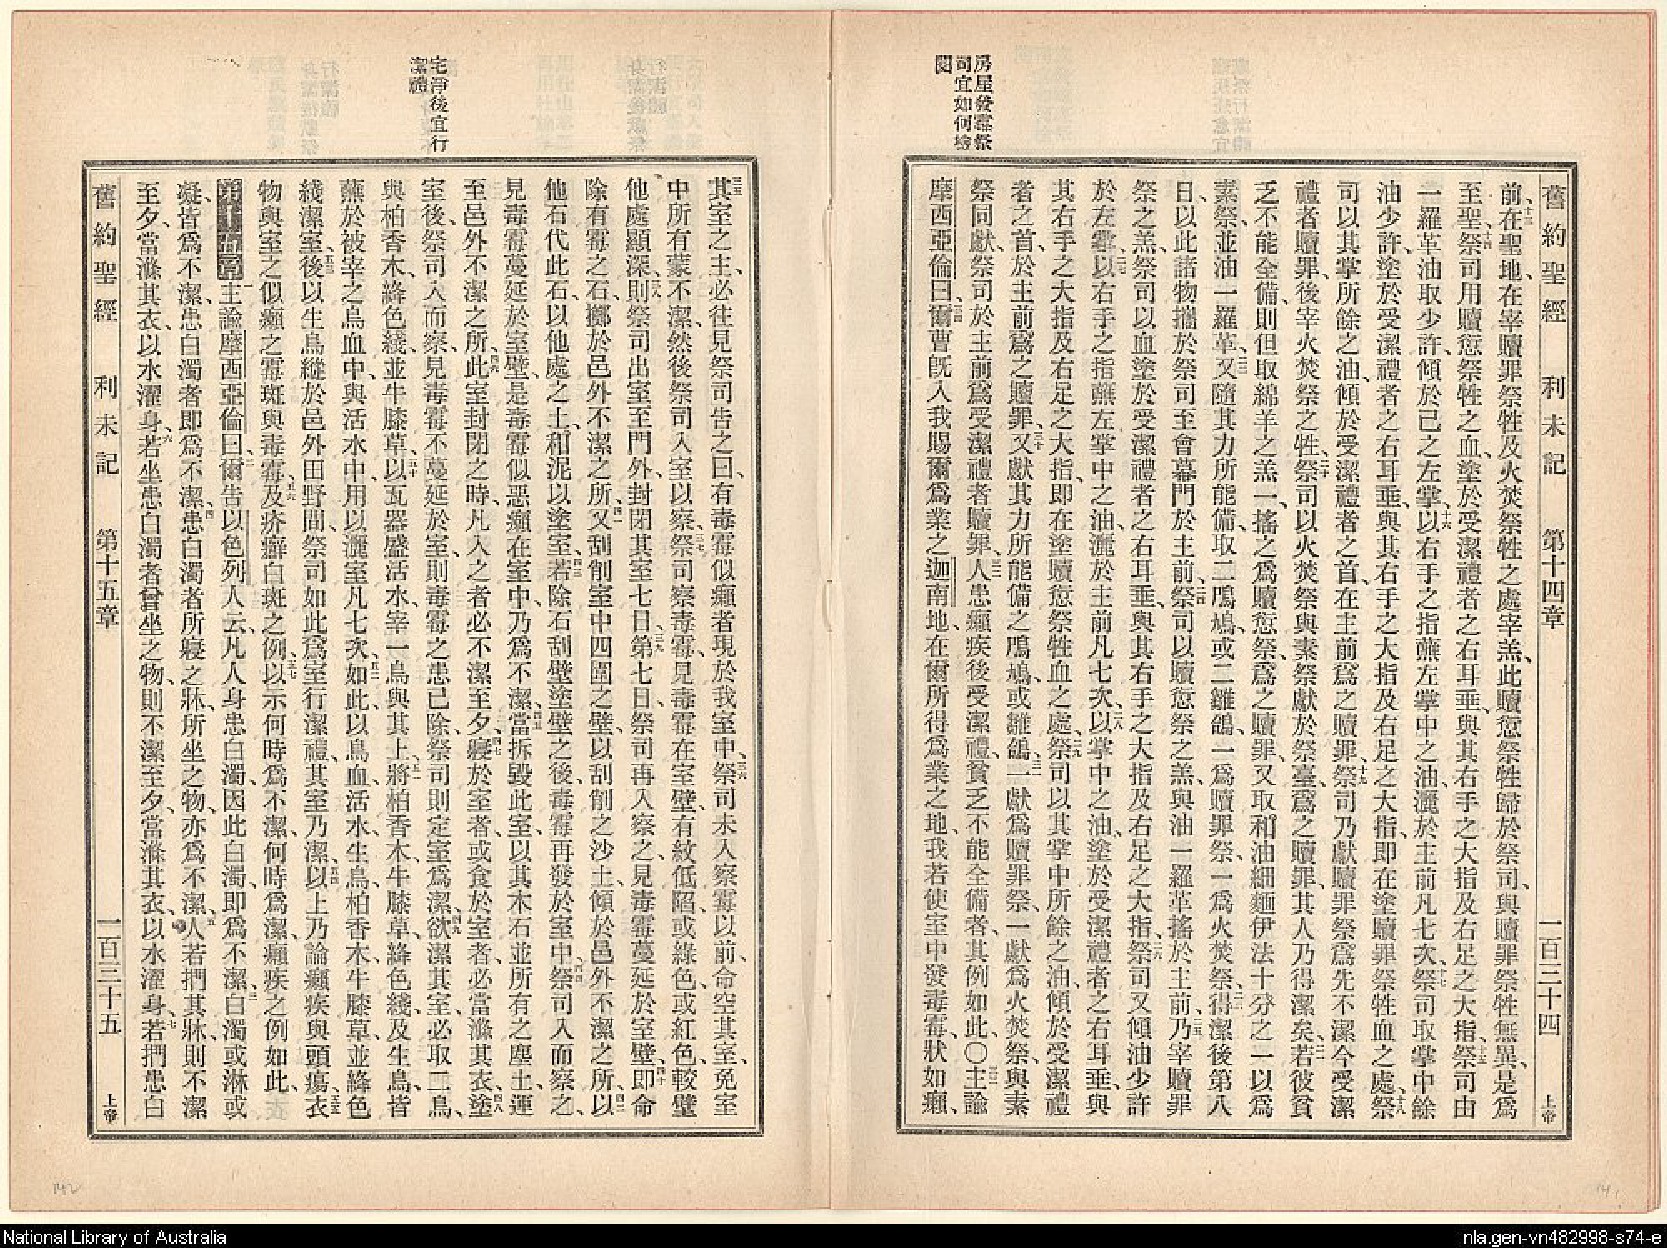 舊約聖經 利未記 第十四章 一百三十四 上帝
前、在聖地、在宰贖罪祭牲及火焚祭牲之處宰羔、此贖愆祭牲歸於祭司、與贖罪祭牲無異、是爲
至聖、祭司用贖愆祭牲之血、塗於受潔禮者之右耳垂、與其右手之大指及右足之大指、祭司由
一羅革油取少許、傾於己之左掌、以右手之指蘸左掌中之油、灑於主前凡七次、祭司取掌中餘
油少許、塗於受潔禮者之右耳垂、與其右手之大指及右足之大指、卽在塗贖罪祭牲血之處、祭
司以其掌所餘之油、傾於受潔禮者之首、在主前爲之贖罪、祭司乃獻贖罪祭、爲先不潔今受潔
禮者贖罪、後宰火焚祭之牲、祭司以火焚祭與素祭獻於祭臺、爲之贖罪、其人乃得潔矣、若彼貧
乏不能全備、則但取綿羊之羔一、搖之爲贖愆祭、爲之贖罪、又取和油細麵伊法十分之一以爲
素祭、並油一羅革、又隨其力所能備、取二鳲鳩、或二雛鴿、一爲贖罪祭、一爲火焚祭、得潔後第八
日、以此諸物攜於祭司、至會幕門於主前、祭司以贖愆祭之羔、與油一羅革、搖於主前、乃宰贖罪
祭之羔、祭司以血塗於受潔禮者之右耳垂、與其右手之大指及右足之大指、祭司又傾油少許
於左掌、以右手之指蘸左掌中之油、灑於主前凡七次、以掌中之油、塗於受潔禮者之右耳垂、與
其右手之大指及右足之大指、卽在塗贖愆祭牲血之處、祭司以其掌中所餘之油、傾於受潔禮
者之首、於主前爲之贖罪、又獻其力所能備之鳲鳩、或雛鴿、一獻爲贖罪祭、一獻爲火焚祭、與素
祭同獻、祭司於主前爲受潔禮者贖罪、人患癩疾後受潔禮、貧乏不能全備者、其例如此、〇主諭
摩西亞倫曰、爾曹旣入我賜爾爲業之迦南地、在爾所得爲業之地、我若使室中發毒霉、狀如癩、
房屋發霉祭
司宜如何
閱
其室之主、必往見祭司告之曰、有毒霉似癩者現於我室中、祭司未入察霉以前、命空其室、免室
中所有蒙不潔、然後祭司入室以察、祭司察毒霉、見毒霉在室壁有紋低陷、或綠色、或紅色、較壁
他處顯深、則祭司出室至門外、封閉其室七日、第七日祭司再入察之、見毒霉蔓延於室壁、卽命
除有霉之石、擲於邑外不潔之所、又刮削室中四圍之壁、以刮削之沙土、傾於邑外不潔之所、以
他石代此石、以他處之土、和泥以塗室、若除石刮壁塗壁之後、毒霉再發於室中、祭司入而察之、
見毒霉蔓延於室壁、是毒霉似惡癩在室中、乃爲不潔、當拆毀此室、以其木石並所有之塵土、運
至邑外不潔之所、此室封閉之時、凡入之者必不潔至夕、寢於室者、或食於室者、必當滌其衣、塗
室後、祭司入而察、見毒霉不蔓延於室、則毒霉之患已除、祭司則定室爲潔、欲潔其室、必取二鳥、
與柏香木、絳色綫、並牛膝草、以瓦器盛活水、宰一鳥與其上、將柏香木、牛膝草、絳色綫、及生鳥、皆
蘸於被宰之鳥血中、與活水中、用以灑室凡七次、如此以鳥血、活水、生鳥、柏香木、牛膝草、並絳色
綫潔室、後以生鳥縱於邑外田野間、祭司如此爲室行潔禮、其室乃潔、以上乃論癩疾與頭瘍、衣
物與室之似癩之霉斑、與毒霉、及疥癬白斑之例、以示何時爲不潔、何時爲潔、癩疾之例如此、
第十五章 主諭摩西亞倫曰、爾告以色列人云、凡人身患白濁、因此白濁、卽爲不潔、白濁或淋或
凝、皆爲不潔、患白濁者卽爲不潔、患白濁者所寢之牀、所坐之物、亦爲不潔、人若捫其牀、則不潔
至夕、當滌其衣、以水濯身、若坐患白濁者曾坐之物、則不潔至夕、當滌其衣、以水濯身、若捫患白
宅淨後宜行
潔禮
舊約聖經 利未記 第十五章 一百三十五 上帝
National Library of Australia
nla.gen-vn482998-s74-e